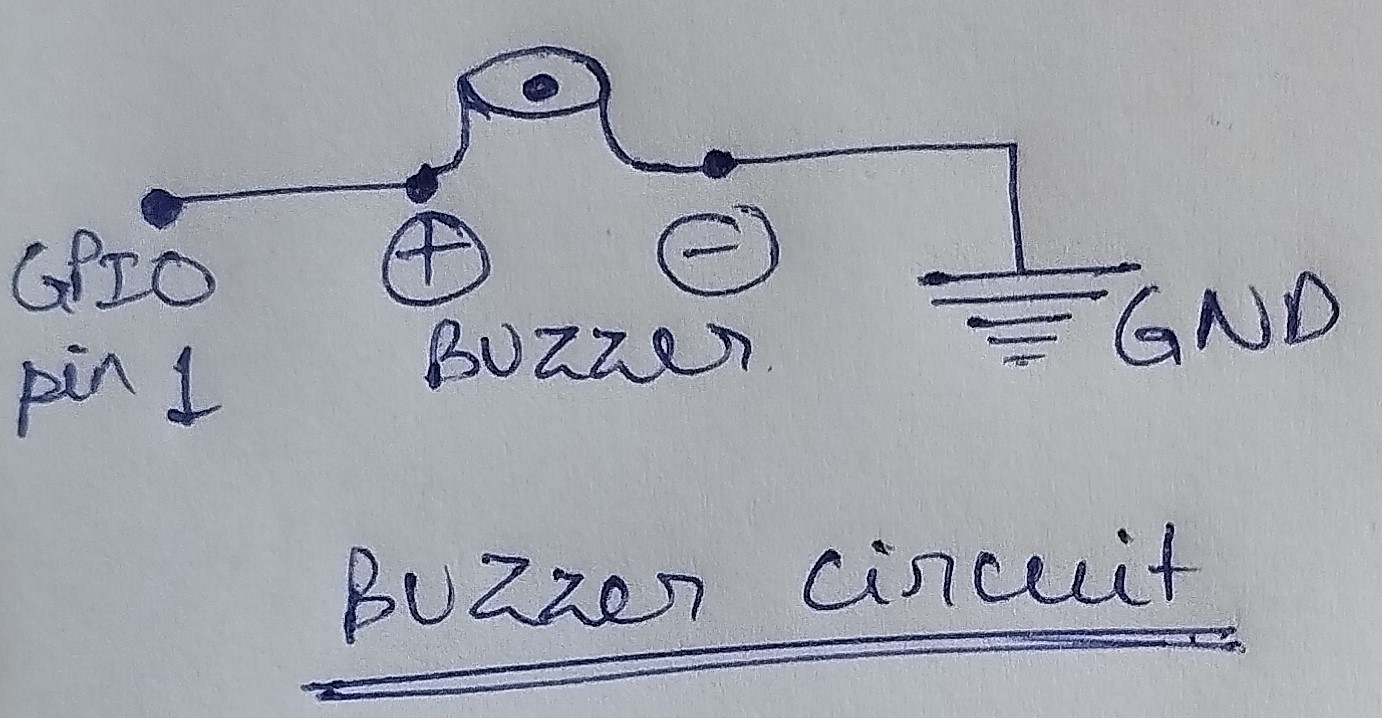 GPIO
pin 1
+
-
Buzzer
GND
Buzzer circuit